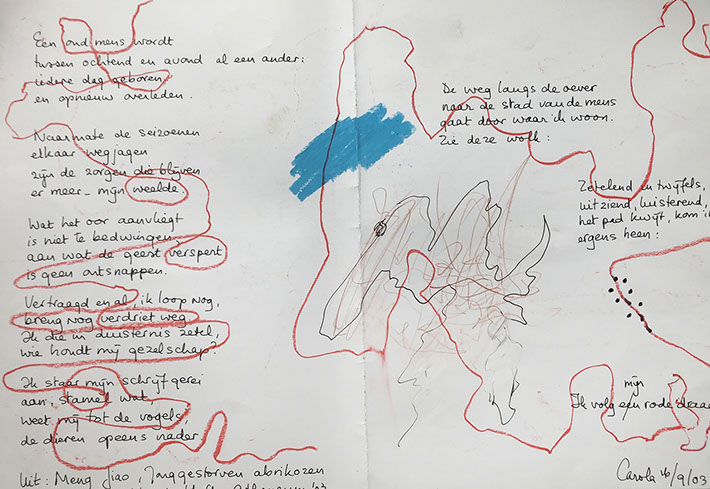 Een oud mens wordt
tussen ochtend en avond al een ander:
iedere dag geboren
en opnieuw overleden.
Naarmate de seizoenen
elkaar wegjagen
zijn de zorgen die blijven
er meer – mijn weelde.
Wat het oor aanvliegt
is niet te bedwingen,
aan wat de geest verspert
is geen ontsnappen.
Vertraagd en al, ik loop nog,
breng nog verdriet weg.
Ik die in duisternis zetel,
wie houdt mij gezelschap?
Ik staar mijn schrijfgerei
aan, stamel wat,
weet mij tot de vogels,
de dieren opeens nader
Uit: Meng Jiao, Jonggestorven abrikozen
De weg langs de oever
naar de stad van de mens
gaat door waar ik woon.
Zie deze wolk:
Zetelend in twijfels,
uitziend, luisterend,
het pad kwijt, kom ik
ergens heen:
mijn
Ik volg een rode draad
Carola 16/9/03